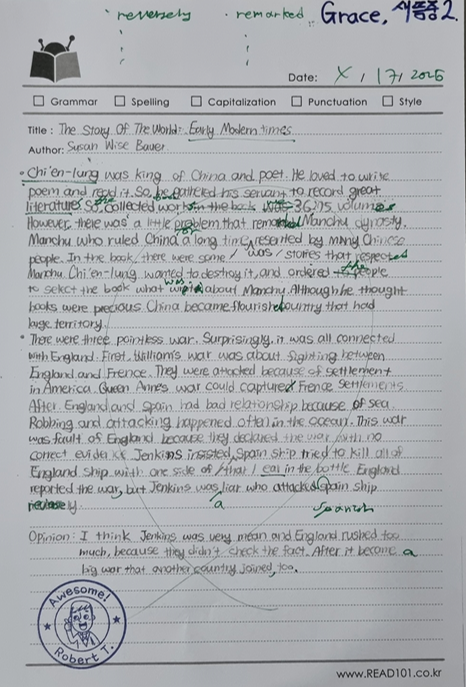 reversely · remarked Grace, 세종중2.
Date: X / 17 / 2025
Grammar Spelling Capitalization Punctuation Style
Title : The Story Of The World: Early Modern times
Author: Susan Wise Bauer
• Chi'en-lung was king of China and poet. He loved to write
poem and read it. So, he gathered his servant to record great
literatures So collected work in the book 36,275 volumes
However, there was a little problem that remarked Manchu dynasty.
Manchu who ruled China a long time, resented by many Chinese
people. In the book, there were some / was / stories that respected
Manchu. Chi'en-lung wanted to destroy it, and ordered the people
to select the book what was about Manchu. Although he thought
books were precious China became flourished country that had
large territory.
• There were three pointless war. Surprisingly, it was all connected
with England. First, William's war was about fighting between
England and Frence. They were attacked because of settlement
in America. Queen Anne's war could captured Frence settlements
After England and Spain had bad relationship because of sea.
Robbing and attacking happened often in the ocean. This war
was fault of England because they declared the war with no
correct evidence Jenkins insisted, Spain ship tried to kill all of
England ship with one side of / that / ear in the bottle. England
reported the war, but Jenkins was liar who attacked Spain ship
reversely. a Spanish
Opinion: I think Jenkins was very mean and England rushed too
much, because they didn't check the fact. After it become a
big war that another country joined, too.
Awesome!
Robert T.
www.READ101.co.kr